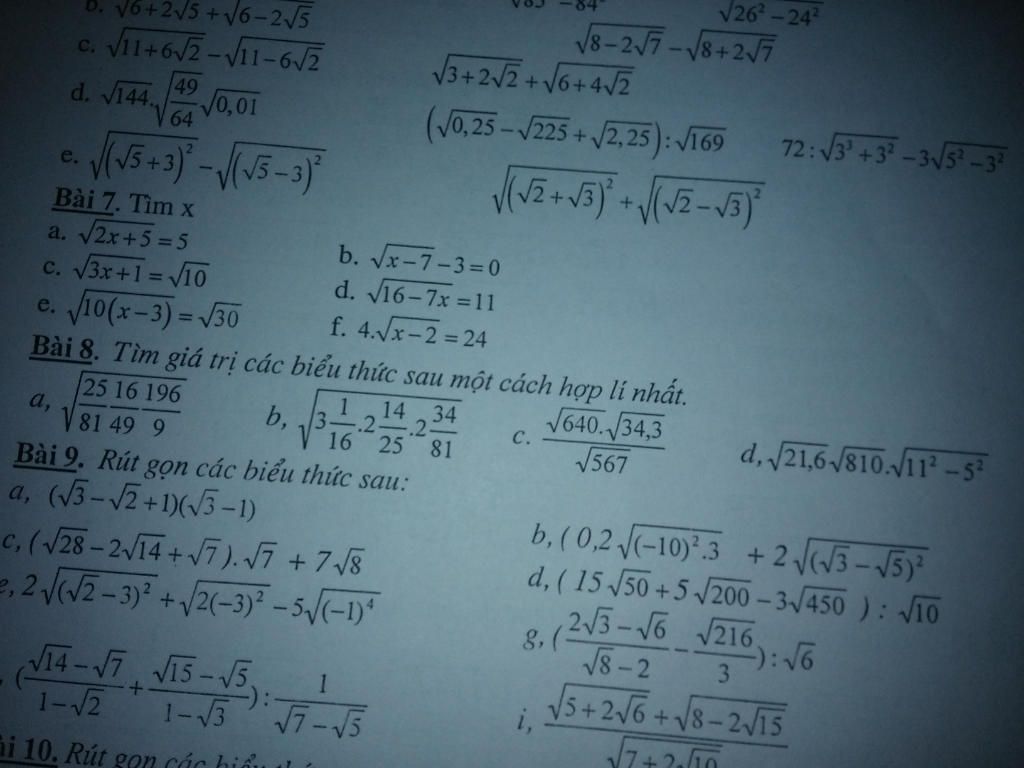 b. √(6+2√5) + √(6−2√5) √(26² − 24²)
c. √(11+6√2) − √(11−6√2) √(8−2√7) − √(8+2√7)
√(3+2√2) + √(6+4√2)
d. √144.√(49/64)√0,01
(√0,25 − √225 + √2,25) : √169 72 : √(3³ + 3²) − 3√(5² − 3²)
e. √((√5+3)²) − √((√5−3)²) √((√2+√3)²) + √((√2−√3)²)
Bài 7. Tìm x
a. √(2x+5) = 5 b. √(x−7) − 3 = 0
c. √(3x+1) = √10 d. √(16−7x) = 11
e. √(10(x−3)) = √30 f. 4.√(x−2) = 24
Bài 8. Tìm giá trị các biểu thức sau một cách hợp lí nhất.
a, √(25/81 16/49 196/9) b, √(3 1/16 .2 14/25 .2 34/81) c. (√640.√34,3)/√567 d, √21,6√810.√(11² − 5²)
Bài 9. Rút gọn các biểu thức sau:
a, (√3 − √2 + 1)(√3 − 1) b, ( 0,2√((−10)².3) + 2√((√3 − √5)²)
c, (√28 − 2√14 + √7 ).√7 + 7√8 d, ( 15√50 + 5√200 − 3√450 ) : √10
e, 2√((√2 − 3)²) + √(2(−3)²) − 5√((−1)⁴) g, ( (2√3 − √6)/(√8 − 2) − √216/3 ) : √6
( (√14 − √7)/(1 − √2) + (√15 − √5)/(1 − √3) ) : 1/(√7 − √5) i, (√(5+2√6) + √(8−2√15))/√(7+2√10)
Bài 10. Rút gọn các biểu